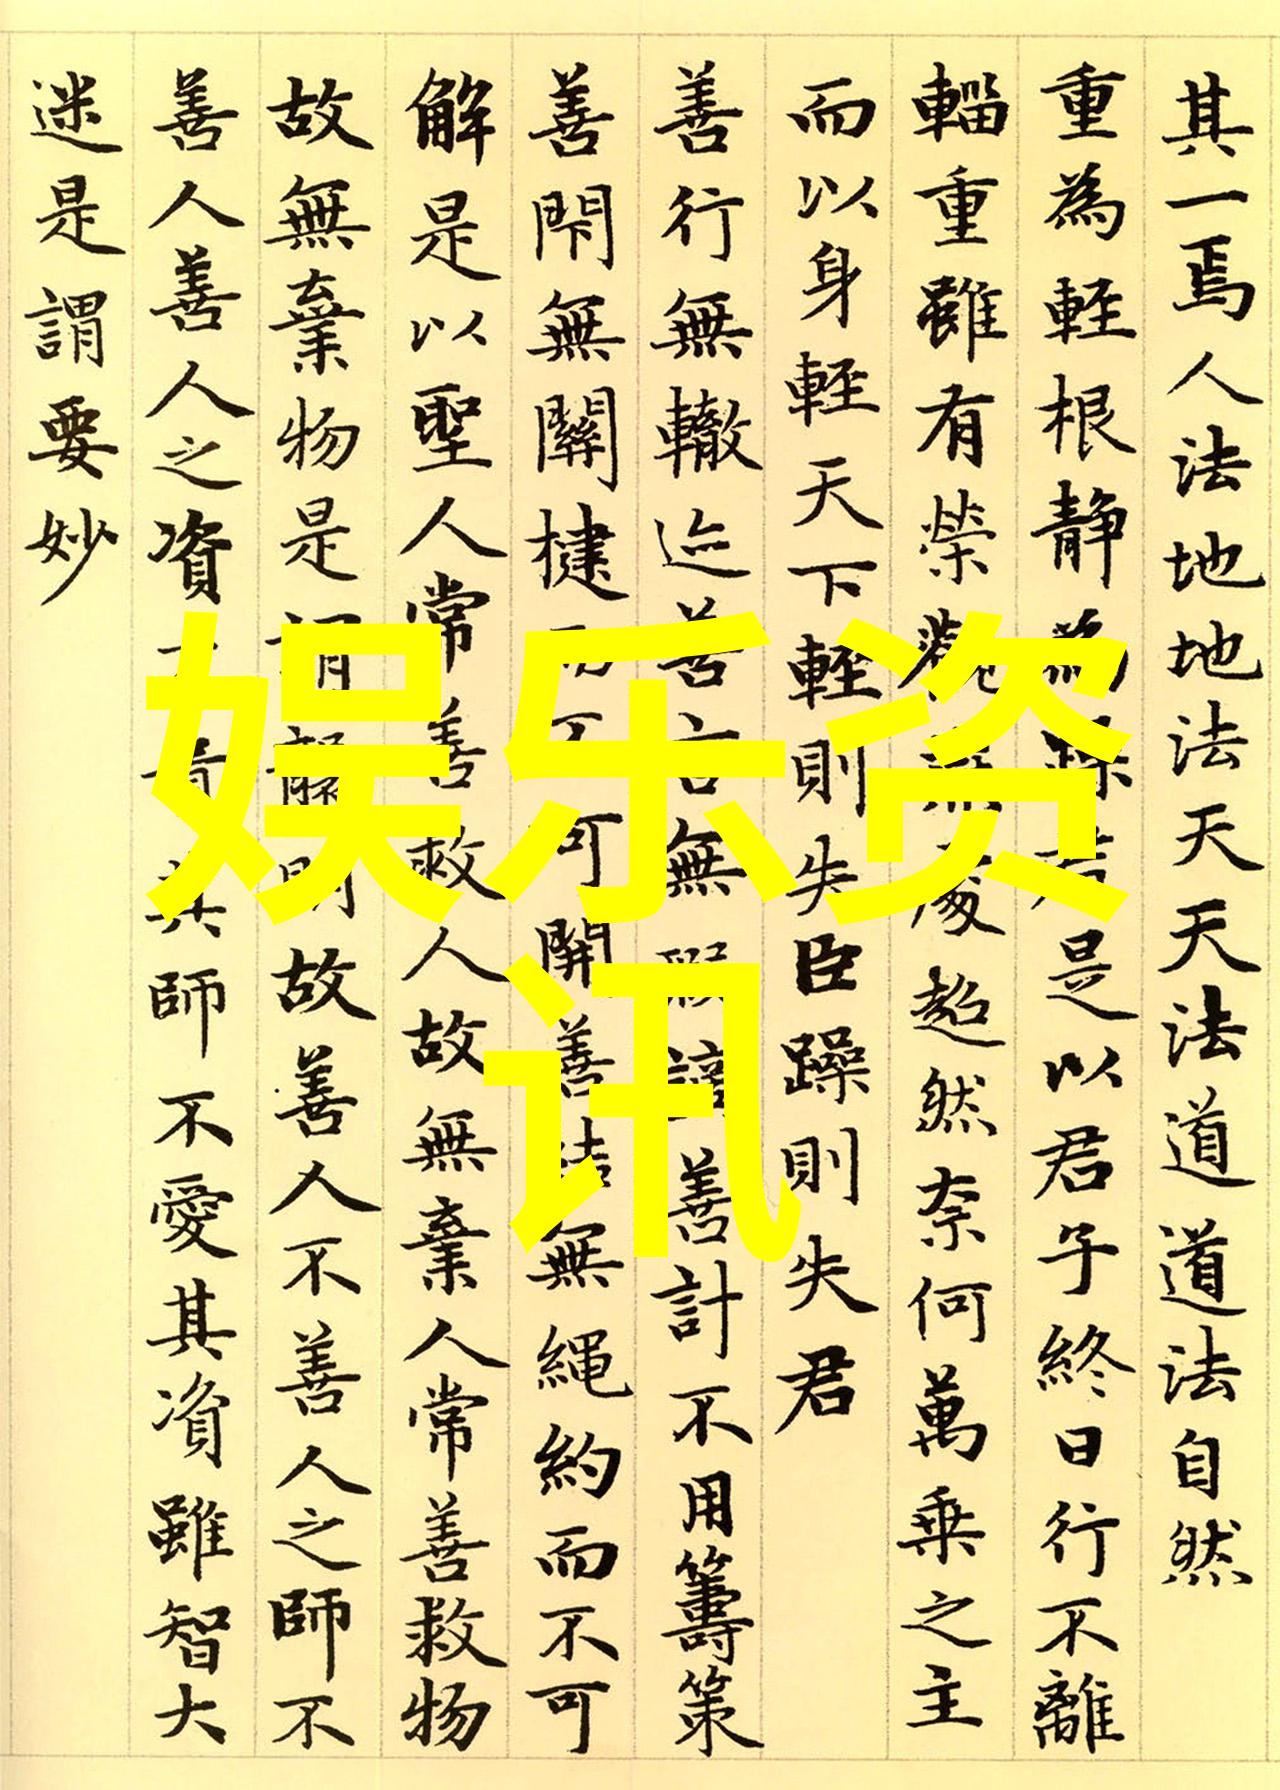 其一焉人法地地法天天法道道法自然
重為輕根静為躁君是以君子終日行不離
輜重雖有榮觀燕處超然奈何萬乗之主
而以身輕天下輕則失臣躁則失君
善行無轍迹善言無瑕謫善計不用籌策
善閇無關楗而不可開善結無繩約而不可
解是以聖人常善救人故無棄人常善救物
故無棄物是謂襲明故善人不善人之師不
善人善人之資不貴其師不愛其資雖智大
迷是謂要妙
娱乐资
讯